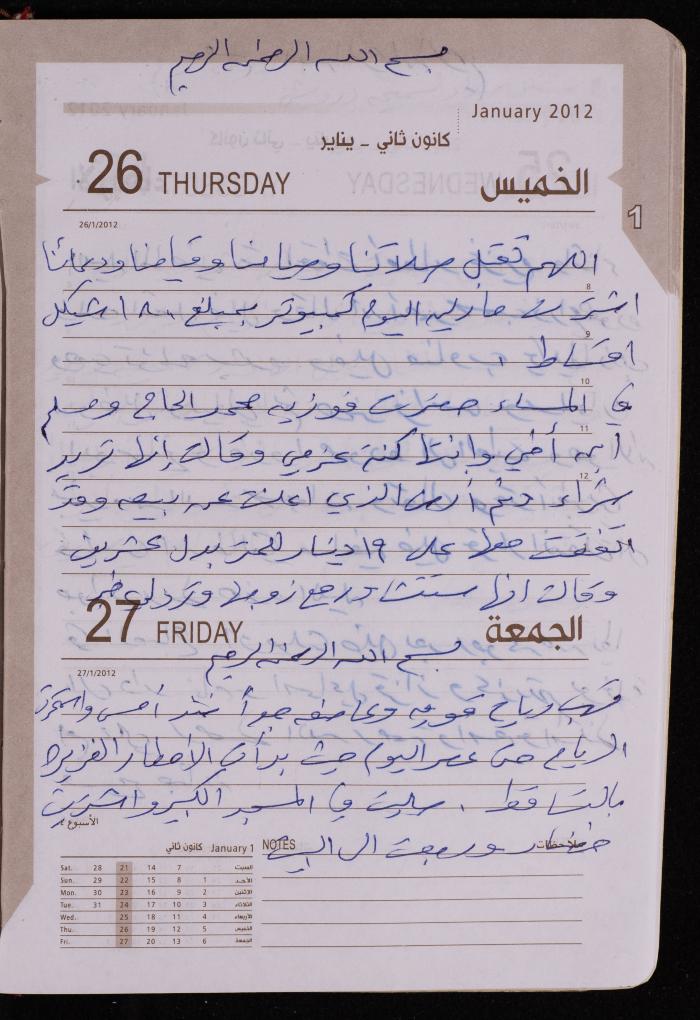 بسم الله الرحمن الرحيم
January 2012
كانون ثاني - يناير
26 THURSDAY الخميس
1
26/1/2012
اللهم تقبل صلاتنا وصيامنا وقيامنا ودعائنا
8
اشترت مارلين اليوم كمبيوتر بمبلغ ١٨٠٠ شيكل
9
اقساط .
10
في المساء حضرت فوزيه محمد الحاج
11
أبن أخي وابنتها كنة عزمي وقالت إنها تريد
12
شراء دنم أرض الذي اعلنت عن بيعه وقد
اتفقت معها على ١٩ دينار للمتر بدل عشرين
وقالت انها ستتشاور مع زوجها وترد لي خبر
27 FRIDAY الجمعة
بسم الله الرحمن الرحيم
27/1/2012
تهب رياح قويه وعاصفه جداً منذ أمس واستمرت
الرياح حتى عصر اليوم حيث بدأت الأمطار الغزيره
بالتساقط . صليت في المسجد الكبير واشتريت
الأسبوع ٤
خضار ورجعت الى البيت
NOTES ملاحظات
January 1 كانون ثاني
Sat. 28 21 14 7 السبت
Sun. 29 22 15 8 1 الأحد
Mon. 30 23 16 9 2 الاثنين
Tue. 31 24 17 10 3 الثلاثاء
Wed. 25 18 11 4 الأربعاء
Thu. 26 19 12 5 الخميس
Fri. 27 20 13 6 الجمعة